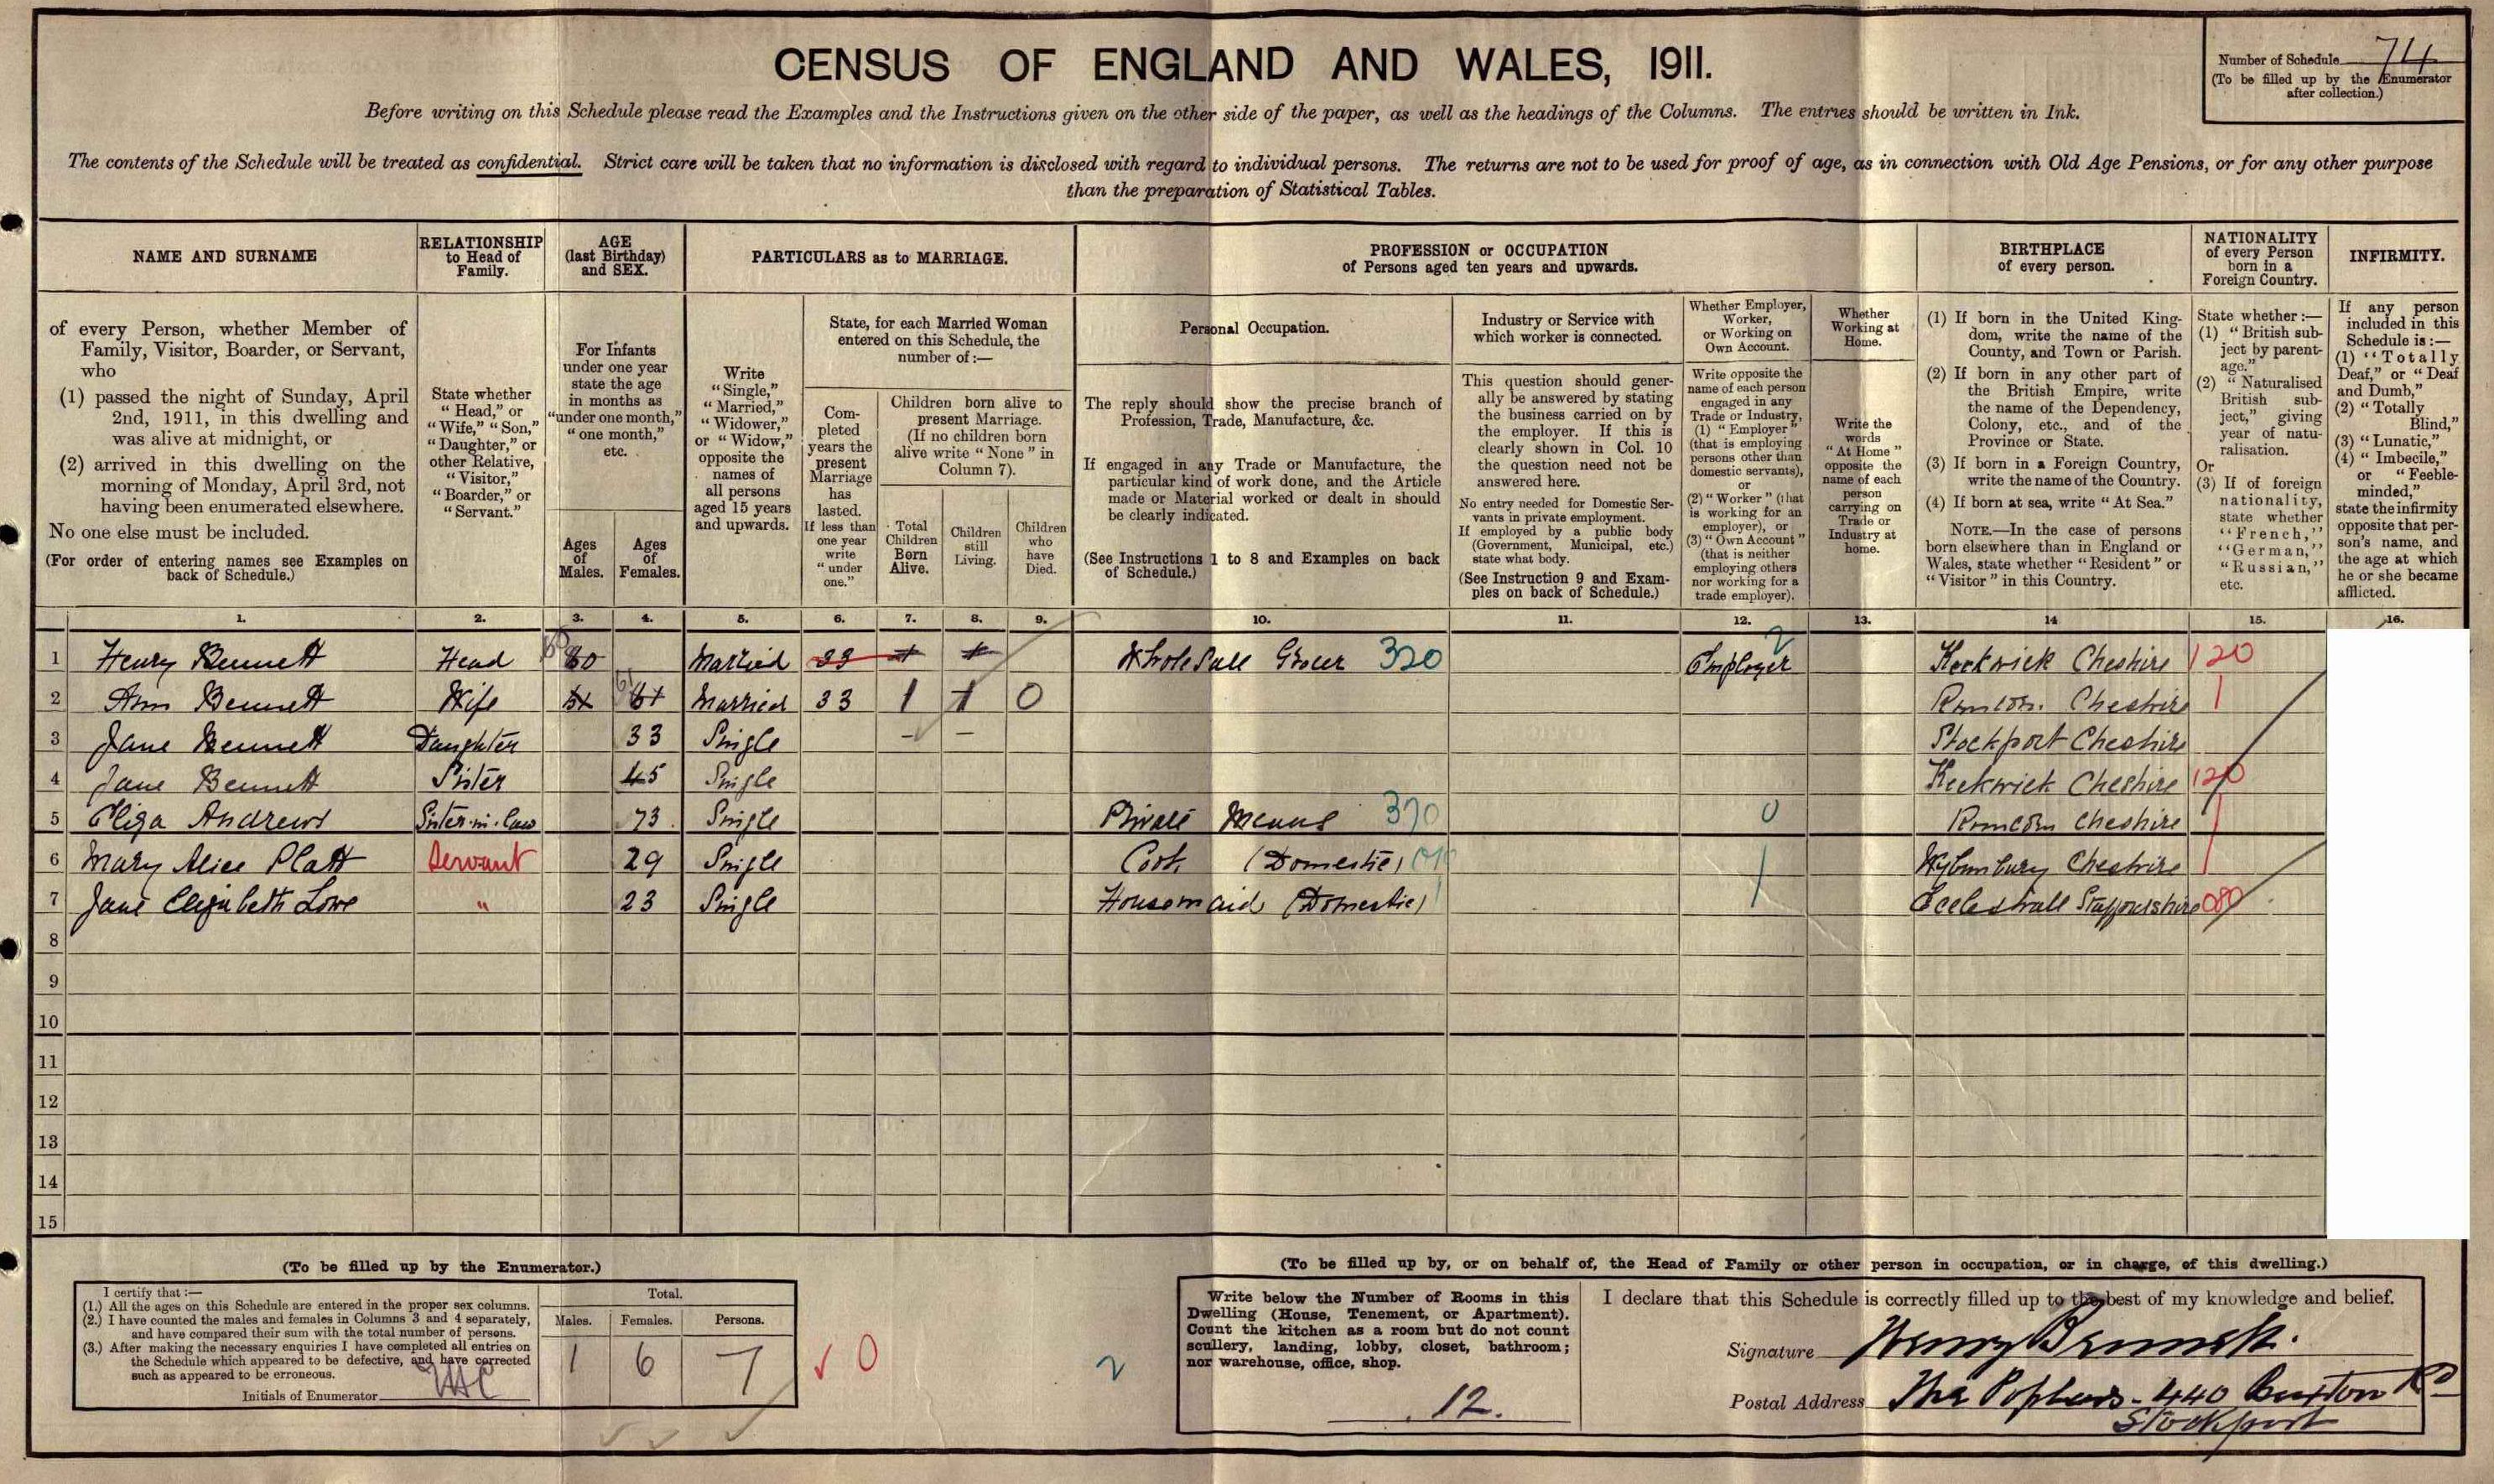 CENSUS OF ENGLAND AND WALES, 1911.
Number of Schedule 74
(To be filled up by the Enumerator
after collection.)
Before writing on this Schedule please read the Examples and the Instructions given on the other side of the paper, as well as the headings of the Columns. The entries should be written in Ink.
The contents of the Schedule will be treated as confidential. Strict care will be taken that no information is disclosed with regard to individual persons. The returns are not to be used for proof of age, as in connection with Old Age Pensions, or for any other purpose
than the preparation of Statistical Tables.
NAME AND SURNAME
of every Person, whether Member of
Family, Visitor, Boarder, or Servant,
who
(1) passed the night of Sunday, April
2nd, 1911, in this dwelling and
was alive at midnight, or
(2) arrived in this dwelling on the
morning of Monday, April 3rd, not
having been enumerated elsewhere.
No one else must be included.
(For order of entering names see Examples on
back of Schedule.)
RELATIONSHIP
to Head of
Family.
State whether
"Head," or
"Wife," "Son,"
"Daughter," or
other Relative,
"Visitor,"
"Boarder," or
"Servant."
AGE
(last Birthday)
and SEX.
For Infants
under one year
state the age
in months as
"under one month,"
"one month,"
etc.
Ages
of
Males.
Ages
of
Females.
PARTICULARS as to MARRIAGE.
Write
"Single,"
"Married,"
"Widower,"
or "Widow,"
opposite the
names of
all persons
aged 15 years
and upwards.
State, for each Married Woman
entered on this Schedule, the
number of:—
Com-
pleted
years the
present
Marriage
has
lasted.
If less than
one year
write
"under
one."
Children born alive to
present Marriage.
(If no children born
alive write "None" in
Column 7).
Total
Children
Born
Alive.
Children
still
Living.
Children
who
have
Died.
PROFESSION or OCCUPATION
of Persons aged ten years and upwards.
Personal Occupation.
The reply should show the precise branch of
Profession, Trade, Manufacture, &c.
If engaged in any Trade or Manufacture, the
particular kind of work done, and the Article
made or Material worked or dealt in should
be clearly indicated.
(See Instructions 1 to 8 and Examples on back
of Schedule.)
Industry or Service with
which worker is connected.
This question should gener-
ally be answered by stating
the business carried on by
the employer. If this is
clearly shown in Col. 10
the question need not be
answered here.
No entry needed for Domestic Ser-
vants in private employment.
If employed by a public body
(Government, Municipal, etc.)
state what body.
(See Instruction 9 and Exam-
ples on back of Schedule.)
Whether Employer,
Worker,
or Working on
Own Account.
Write opposite the
name of each person
engaged in any
Trade or Industry,
(1) "Employer"
(that is employing
persons other than
domestic servants),
or
(2) "Worker" (that
is working for an
employer), or
(3) "Own Account"
(that is neither
employing others
nor working for a
trade employer).
Whether
Working at
Home.
Write the
words
"At Home"
opposite the
name of each
person
carrying on
Trade or
Industry at
home.
BIRTHPLACE
of every person.
(1) If born in the United King-
dom, write the name of the
County, and Town or Parish.
(2) If born in any other part of
the British Empire, write
the name of the Dependency,
Colony, etc., and of the
Province or State.
(3) If born in a Foreign Country,
write the name of the Country.
(4) If born at sea, write "At Sea."
NOTE.—In the case of persons
born elsewhere than in England or
Wales, state whether "Resident" or
"Visitor" in this Country.
NATIONALITY
of every Person
born in a
Foreign Country.
State whether :—
(1) "British sub-
ject by parent-
age."
(2) "Naturalised
British sub-
ject," giving
year of natu-
ralisation.
Or
(3) If of foreign
nationality,
state whether
"French,"
"German,"
"Russian,"
etc.
INFIRMITY.
If any person
included in this
Schedule is :—
(1) "Totally
Deaf," or "Deaf
and Dumb,"
(2) "Totally
Blind,"
(3) "Lunatic,"
(4) "Imbecile,"
or "Feeble-
minded,"
state the infirmity
opposite that per-
son's name, and
the age at which
he or she became
afflicted.
1. 2. 3. 4. 5. 6. 7. 8. 9. 10. 11. 12. 13. 14 15. 16.
1 Henry Bennett Head 60 Married 33 1 1 Wholesale Grocer 320 Employer 2 Keckwick Cheshire 120
2 Ann Bennett Wife 61 Married 33 1 1 0 Runcorn. Cheshire 1
3 Jane Bennett Daughter 33 Single – – Stockport Cheshire
4 Jane Bennett Sister 45 Single Keckwick Cheshire 120
5 Eliza Andrews Sister-in-law 73 Single Private Means 370 0 Runcorn Cheshire 1
6 Mary Alice Platt Servant 29 Single Cook (Domestic) Wybunbury Cheshire 1
7 Jane Elizabeth Lowe " 23 Single Housemaid (Domestic) Eccleshall Staffordshire 080
8
9
10
11
12
13
14
15
(To be filled up by the Enumerator.)
I certify that :—
(1.) All the ages on this Schedule are entered in the proper sex columns.
(2.) I have counted the males and females in Columns 3 and 4 separately,
and have compared their sum with the total number of persons.
(3.) After making the necessary enquiries I have completed all entries on
the Schedule which appeared to be defective, and have corrected
such as appeared to be erroneous.
Initials of Enumerator
Total.
Males. Females. Persons.
1 6 7
0
2
(To be filled up by, or on behalf of, the Head of Family or other person in occupation, or in charge, of this dwelling.)
Write below the Number of Rooms in this
Dwelling (House, Tenement, or Apartment).
Count the kitchen as a room but do not count
scullery, landing, lobby, closet, bathroom;
nor warehouse, office, shop.
12.
I declare that this Schedule is correctly filled up to the best of my knowledge and belief.
Signature Henry Bennett.
Postal Address The Poplars - 440 Buxton Rd
Stockport